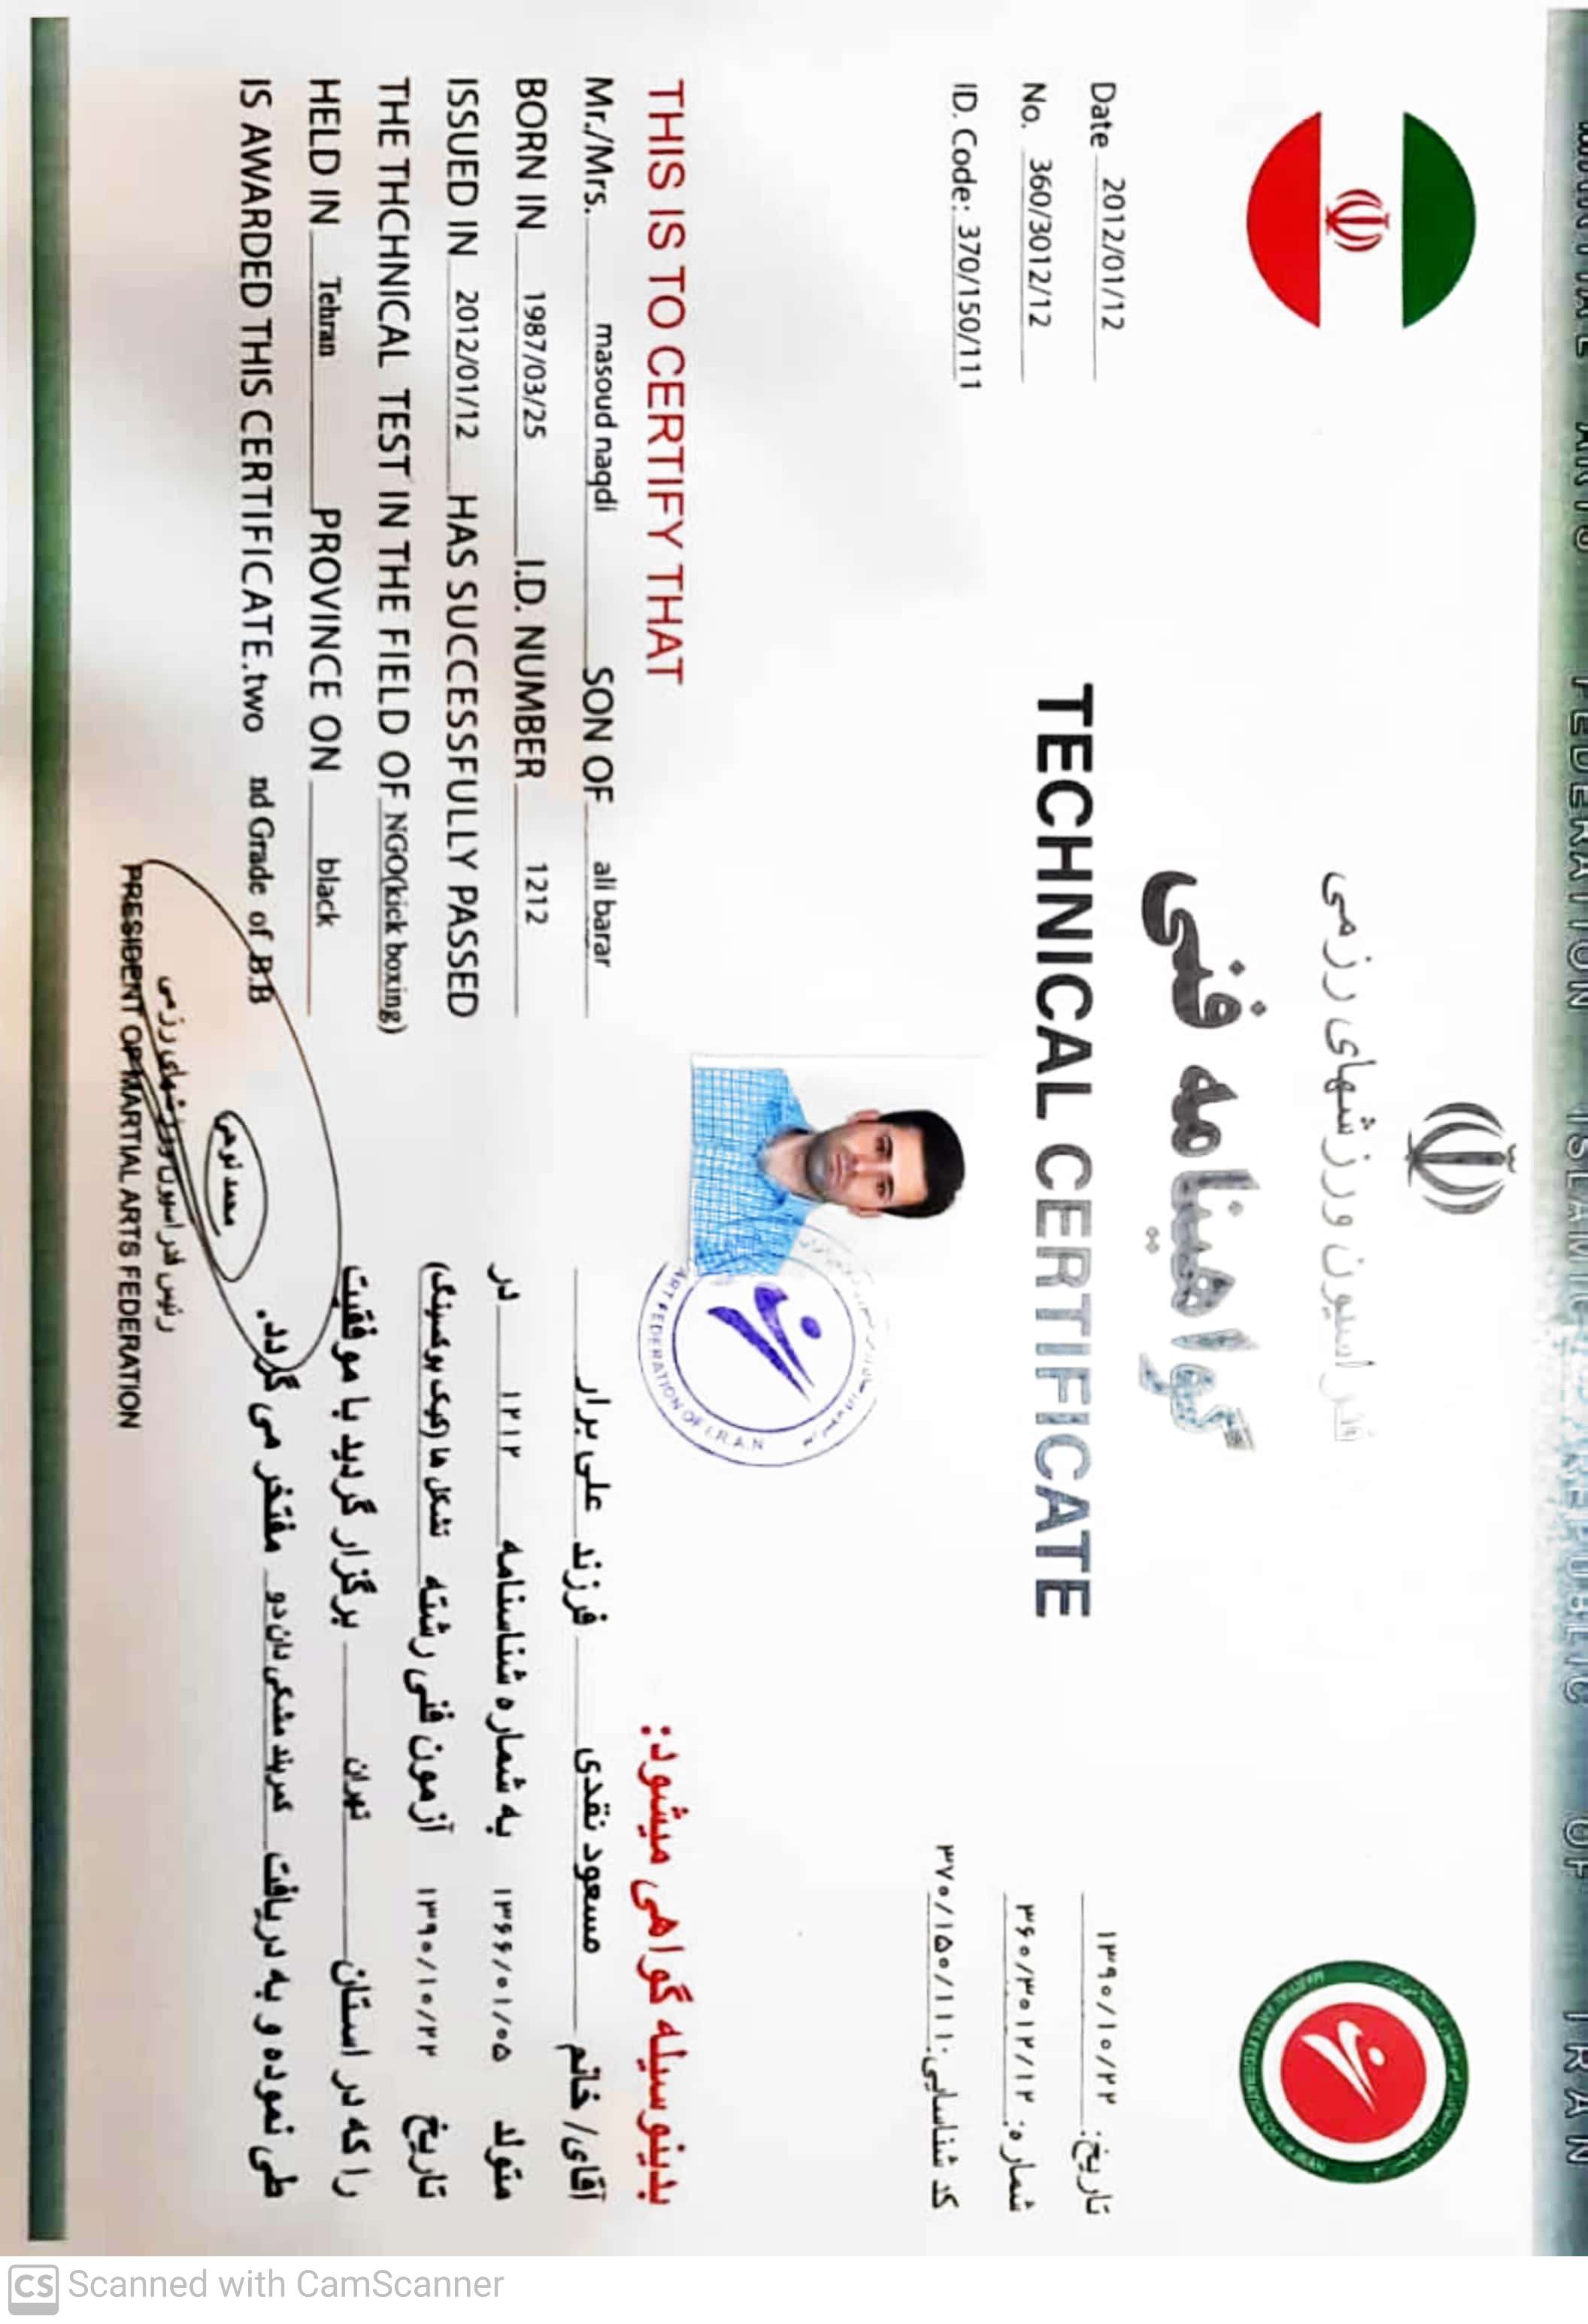 MARTIAL ARTS FEDERATION ISLAMIC REPUBLIC OF IRAN
فدراسیون ورزشهای رزمی
گواهینامه فنی
TECHNICAL CERTIFICATE
Date 2012/01/12
No. 360/3012/12
ID. Code: 370/150/111
تاریخ: ۱۳۹۰/۱۰/۲۲
شماره: ۳۶۰/۳۰۱۲/۱۲
کد شناسایی: ۳۷۰/۱۵۰/۱۱۱
THIS IS TO CERTIFY THAT
Mr./Mrs. masoud naqdi SON OF ali barar
BORN IN 1987/03/25 I.D. NUMBER 1212
ISSUED IN 2012/01/12 HAS SUCCESSFULLY PASSED
THE THCHNICAL TEST IN THE FIELD OF NGO(kick boxing)
HELD IN Tehran PROVINCE ON black
IS AWARDED THIS CERTIFICATE.two nd Grade of B.B
بدینوسیله گواهی میشود:
آقای/ خانم مسعود نقدی فرزند علی برار
متولد ۱۳۶۶/۰۱/۰۵ به شماره شناسنامه ۱۲۱۲ در
تاریخ ۱۳۹۰/۱۰/۲۲ آزمون فنی رشته تشکل ها (کیک بوکسینگ)
را که در استان تهران برگزار گردید با موفقیت
طی نموده و به دریافت کمربند مشکی دان دو مفتخر می گردد.
ART FEDERATION OF I.R.A.N
محمد نوحی
رئیس فدراسیون ورزشهای رزمی
PRESIDENT OF MARTIAL ARTS FEDERATION
CS Scanned with CamScanner